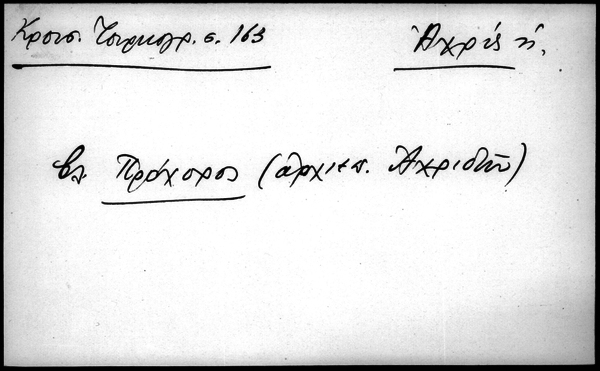 Κρουσ. Τουρκογρ. σ. 163
Ἀχρίς ἡ.
βλ. Πρόχορος (ἀρχιεπ. Ἀχριδῶν)